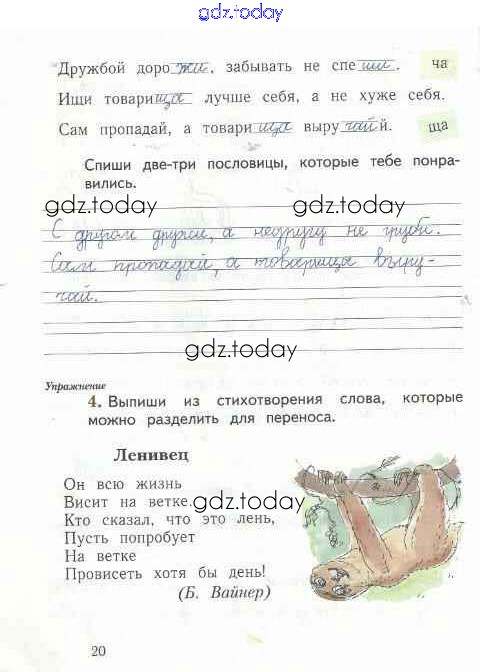 gdz.today
Дружбой дорожи, забывать не спеши. ча
Ищи товарища лучше себя, а не хуже себя.
Сам пропадай, а товарища выручай. ща
Спиши две-три пословицы, которые тебе понра-
вились.
gdz.today gdz.today
С другом дружи, а недругу не груби.
Сам пропадай, а товарища выру-
чай.
gdz.today
Упражнение
4. Выпиши из стихотворения слова, которые
можно разделить для переноса.
Ленивец
Он всю жизнь
Висит на ветке.
gdz.today
Кто сказал, что это лень,
Пусть попробует
На ветке
Провисеть хотя бы день!
(Б. Вайнер)
20